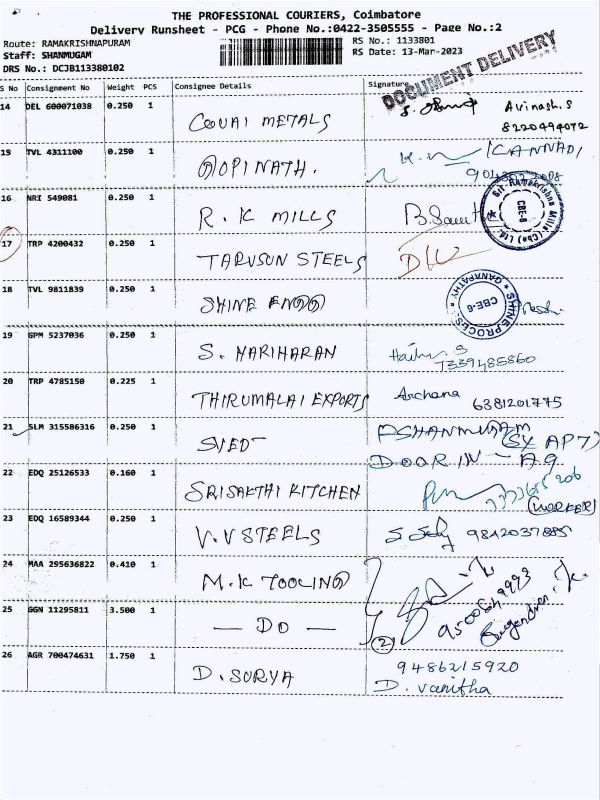 THE PROFESSIONAL COURIERS, Coimbatore
Delivery Runsheet - PCG - Phone No.:0422-3505555 - Page No.:2
Route: RAMAKRISHNAPURAM RS No.: 1133801
Staff: SHANMUGAM RS Date: 13-Mar-2023
DRS No.: DCJB113380102
DOCUMENT DELIVERY
S No Consignment No Weight PCS Consignee Details Signature
14 DEL 600071038 0.250 1 COVAI METALS Avinash.S
8220494072
15 TVL 4311100 0.250 1 GOPINATH.
16 NRI 549081 0.250 1 R. K MILLS
Sri Ramakrishna Mills (Cbe) Ltd. CBE-6
17 TRP 4200432 0.250 1 TARUSUN STEELS
18 TVL 9811839 0.250 1 SHINE ENGG
SHINE PROCESS GANAPATHY CBE-6
19 GPM 5237036 0.250 1 S. HARIHARAN
7339485860
20 TRP 4785150 0.225 1 THIRUMALAI EXPORTS Archana 6381201775
21 SLM 315586316 0.250 1 SYED SHANMUGAM
DOOR IN - A9
22 EDQ 25126533 0.160 1 SRISAKTHI KITCHEN
(WORKER)
23 EDQ 16589344 0.250 1 V.V STEELS 9842037885
24 MAA 295636822 0.410 1 M.K TOOLING
25 GGN 11295811 3.500 1 — DO — 2
26 AGR 700474631 1.750 1 D. SURYA 9486215920
D. Vanitha